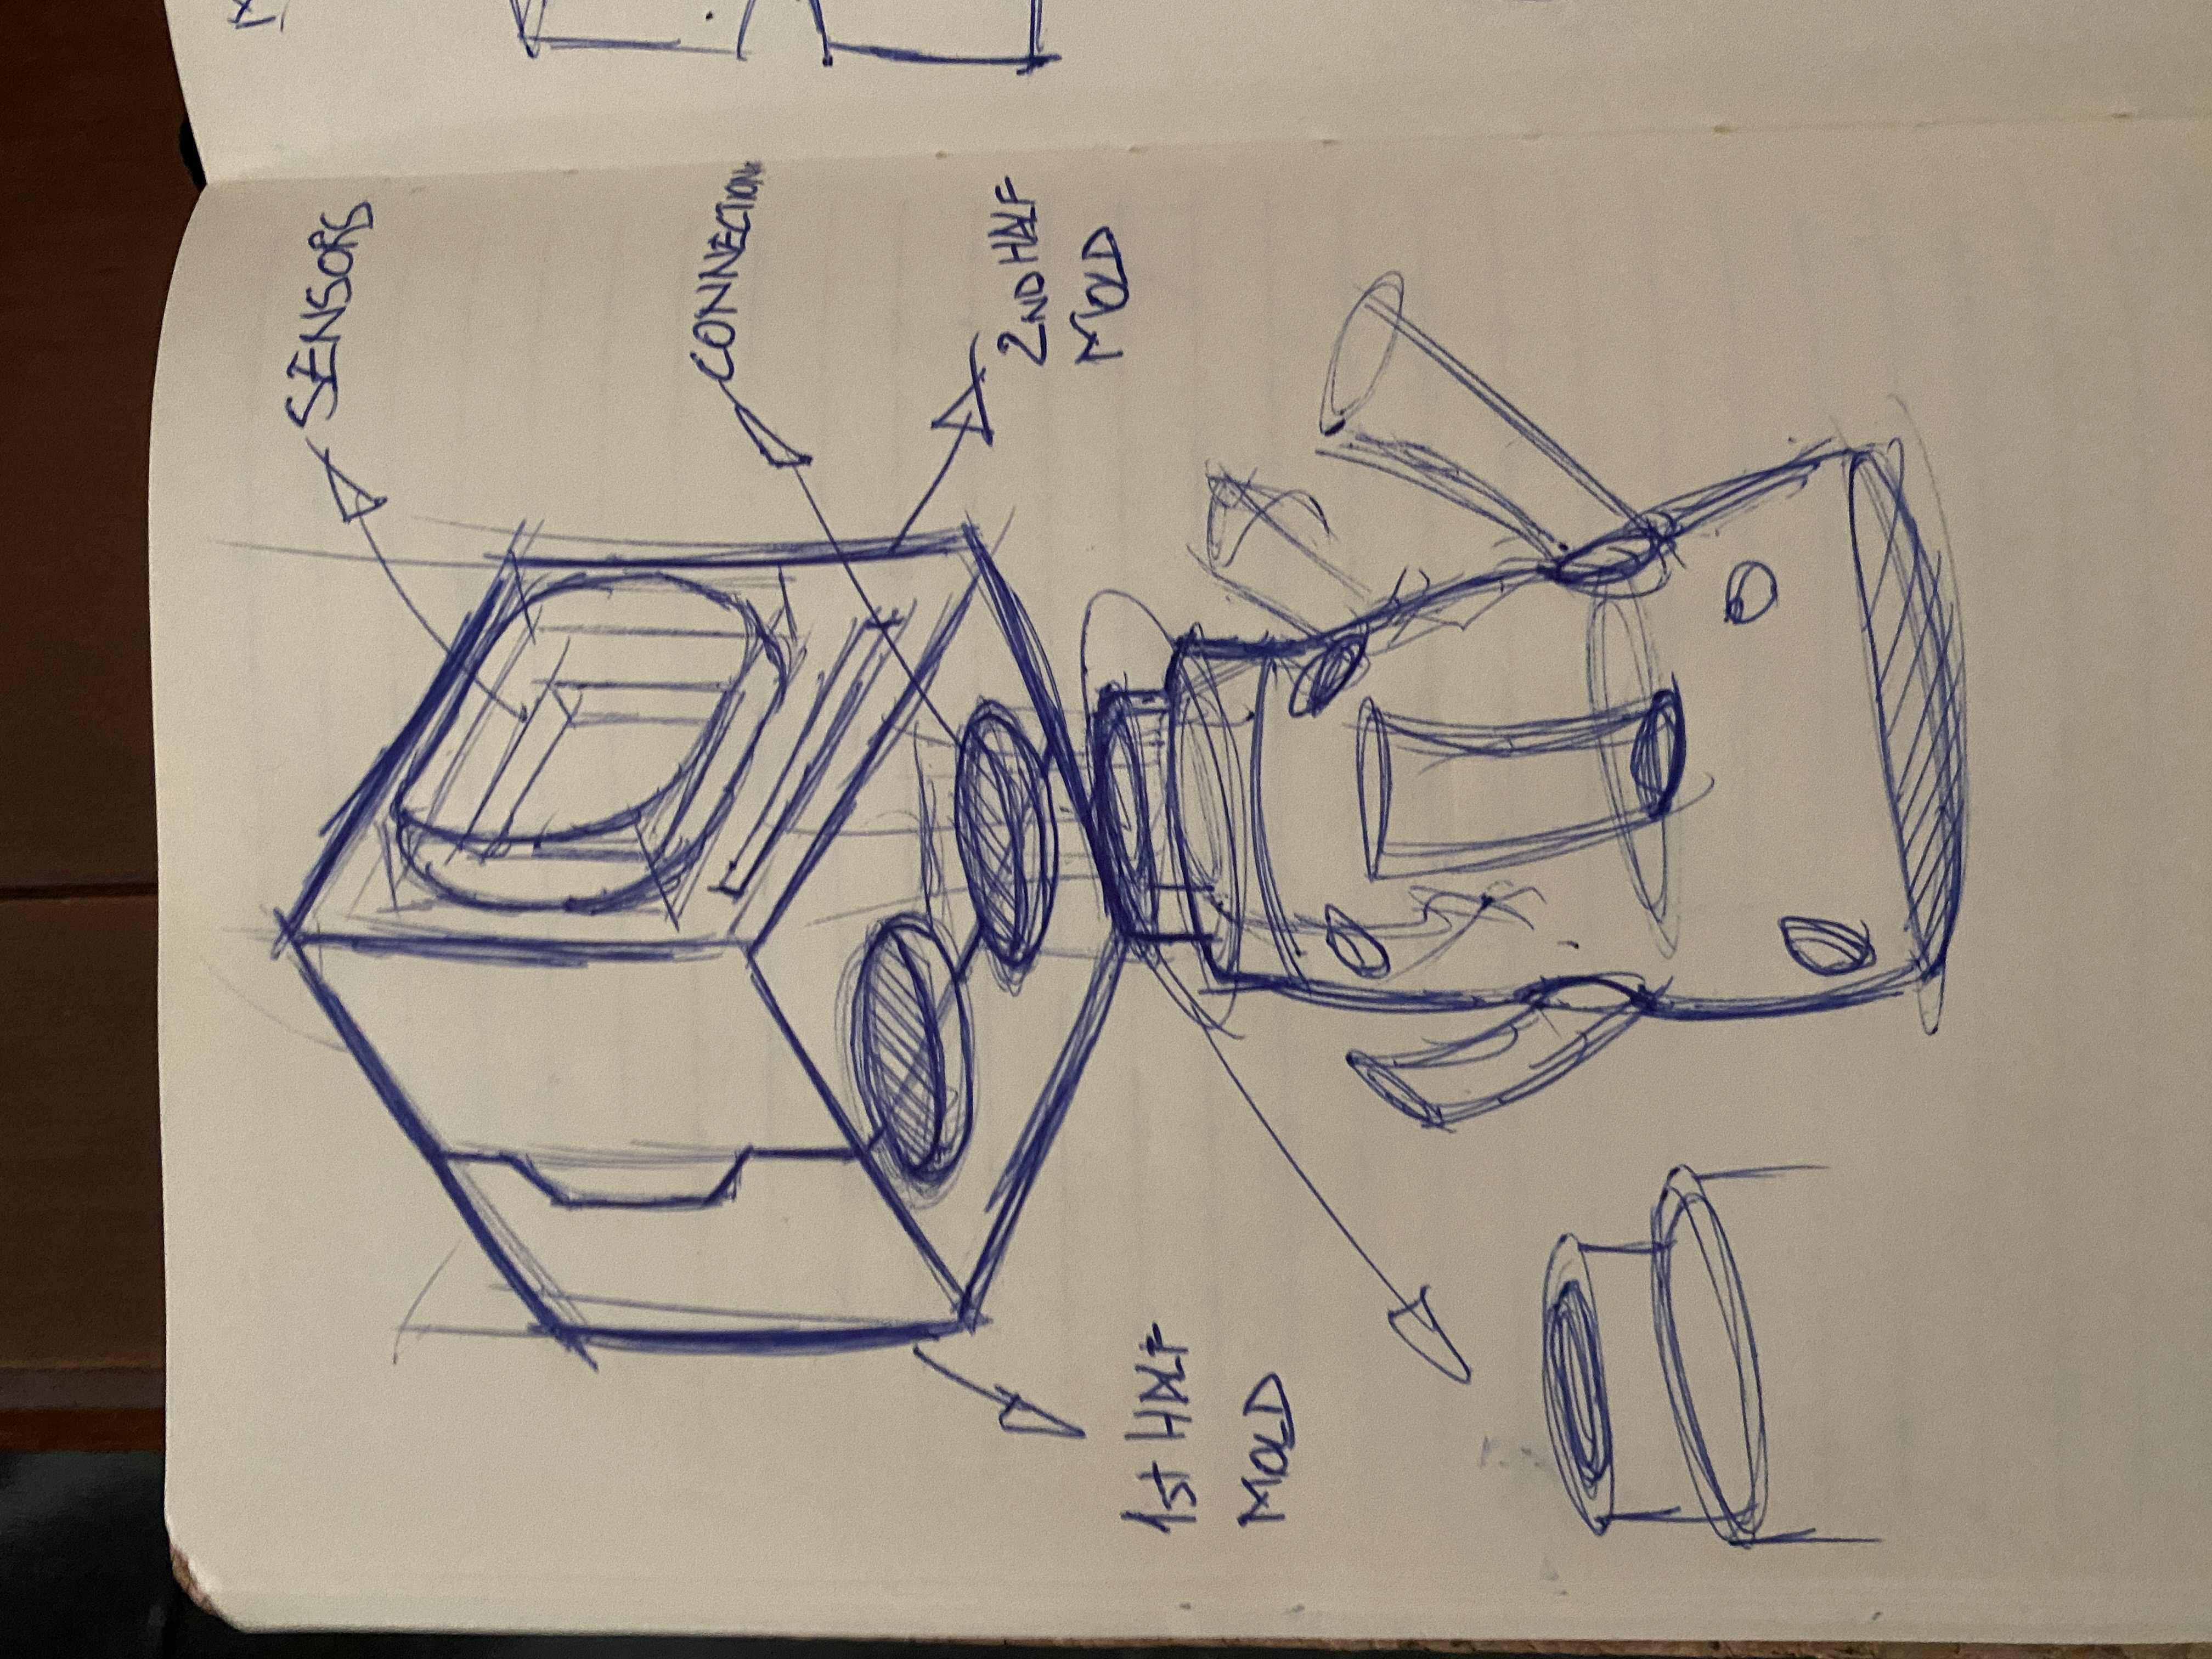 SENSORS
CONNECTIONS
2ND HALF
MOLD
1st HALF
MOLD